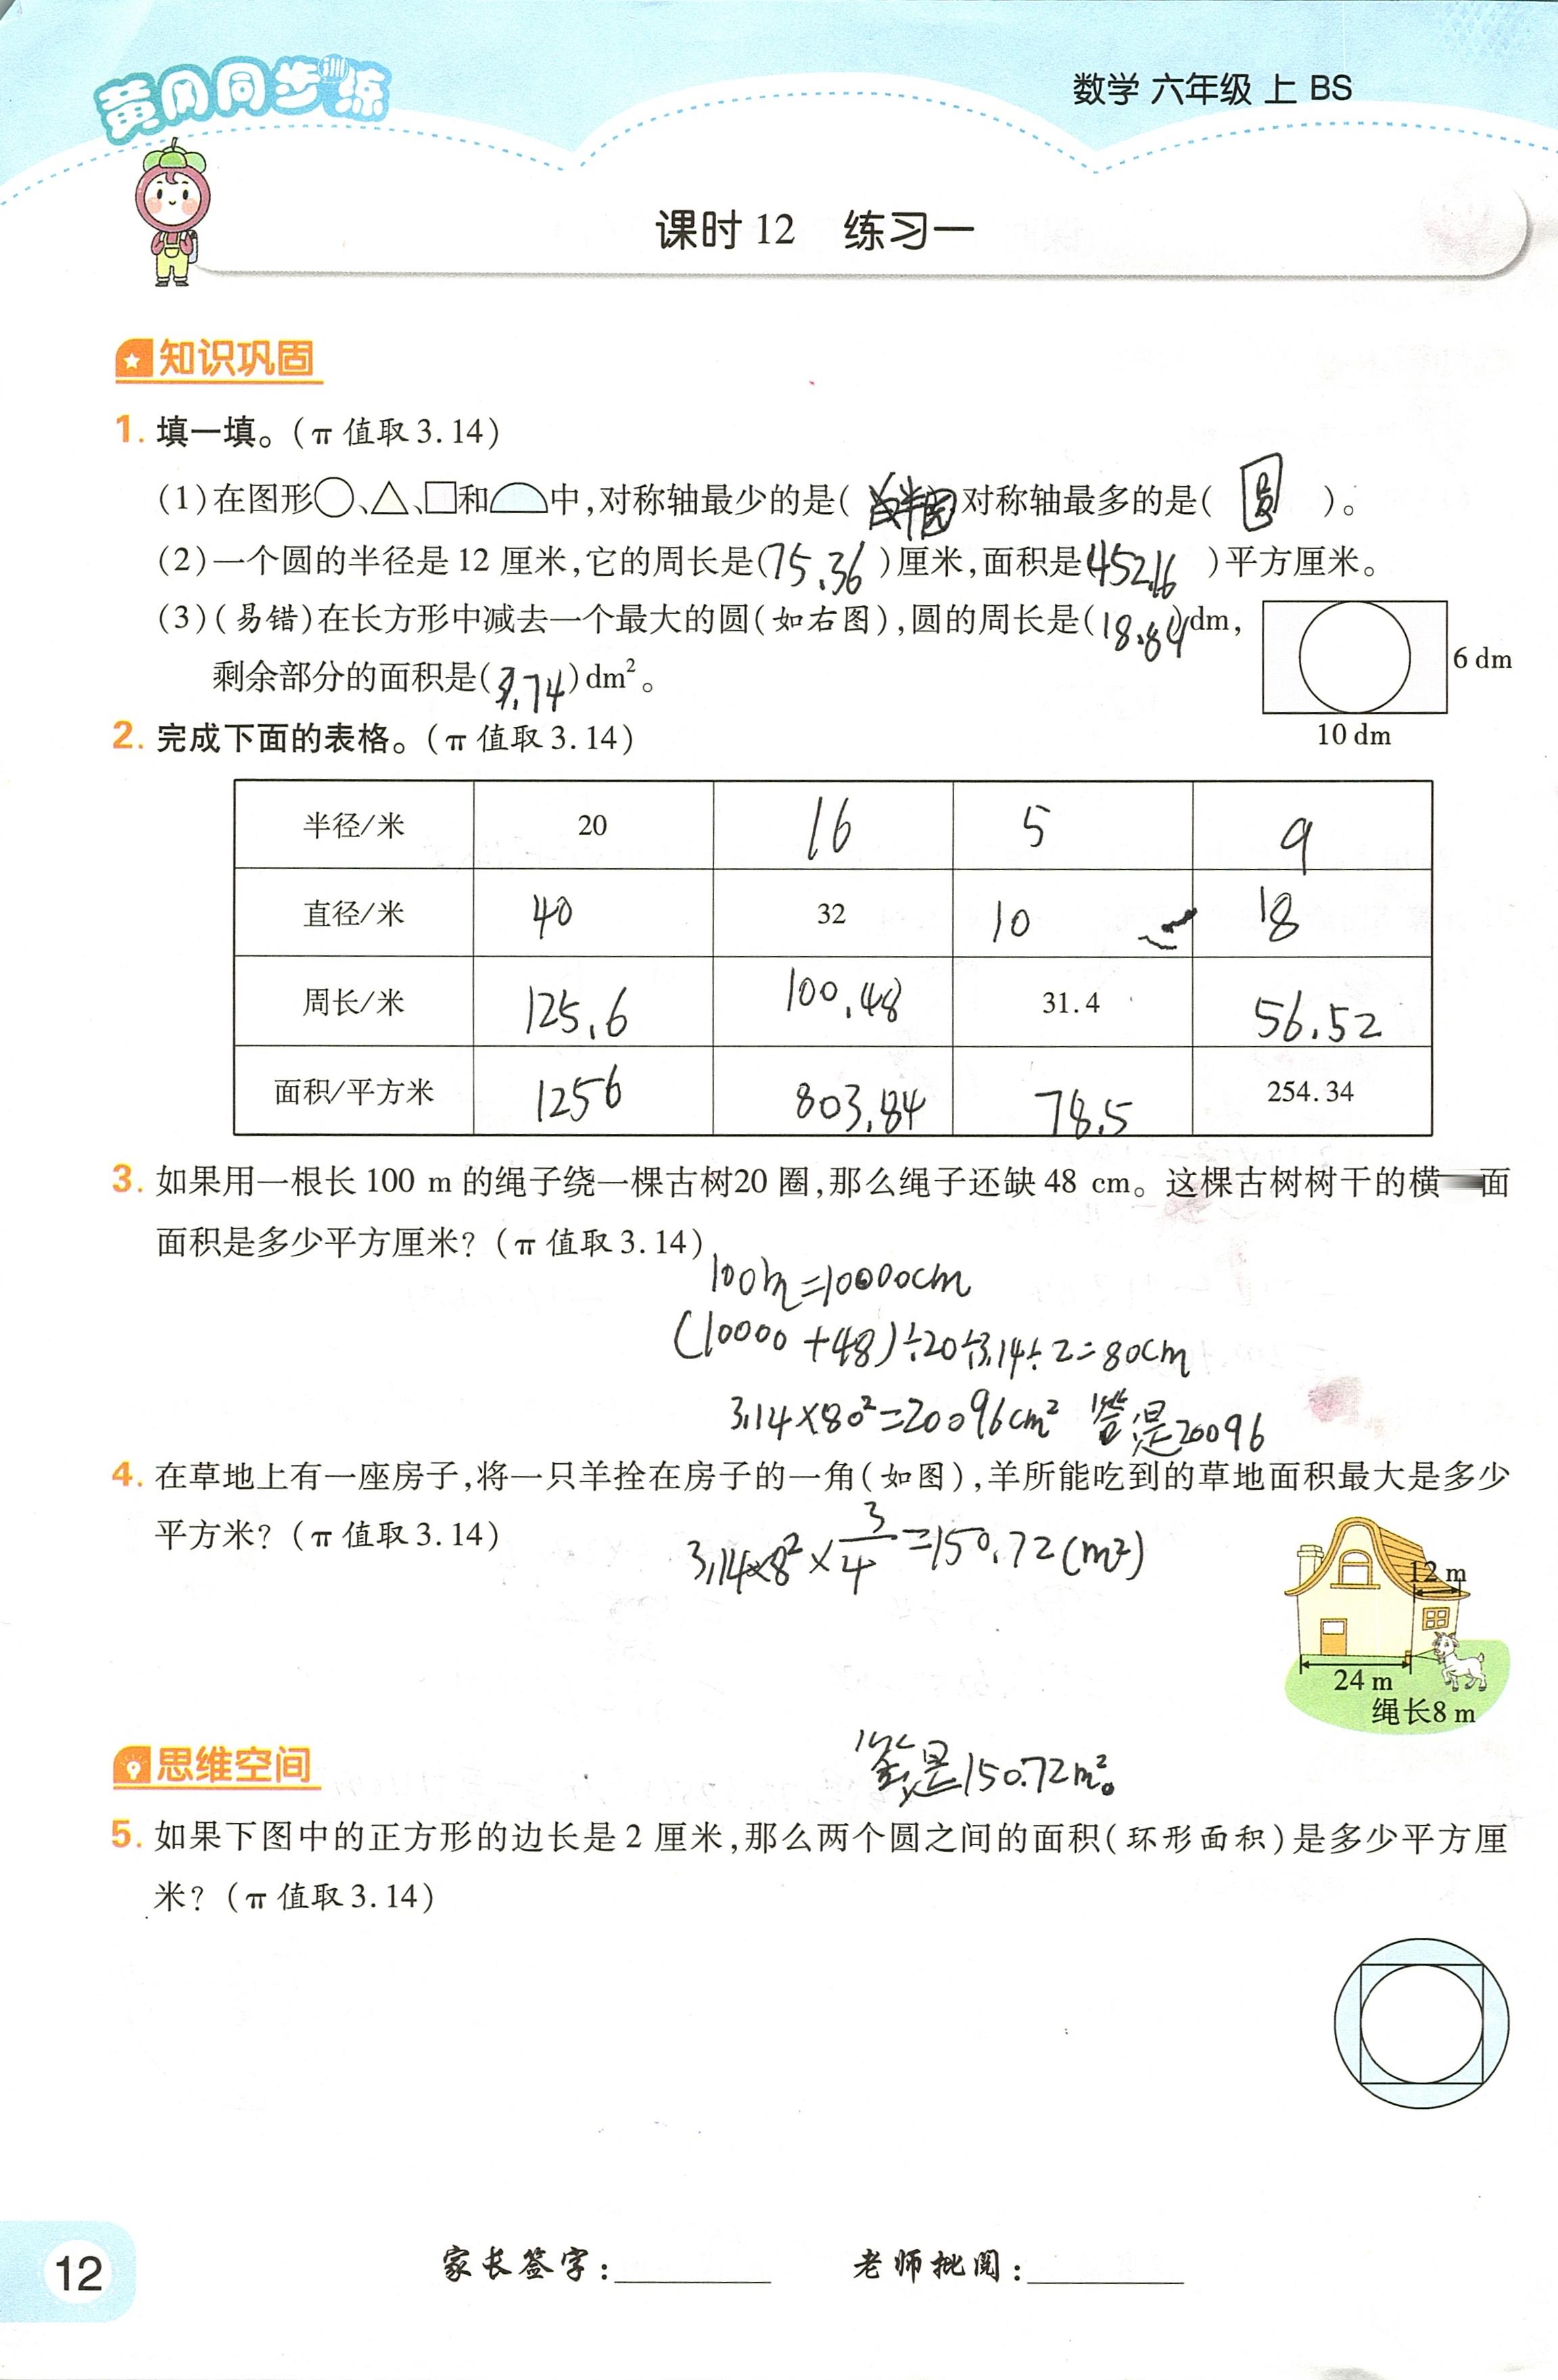 黄冈同步训练
数学 六年级 上 BS
课时 12 练习一
知识巩固
1. 填一填。(π 值取 3.14)
(1)在图形○、△、□和 中,对称轴最少的是( 半圆 对称轴最多的是( 圆 )。
(2)一个圆的半径是 12 厘米,它的周长是(75.36)厘米,面积是(452.16)平方厘米。
(3)(易错)在长方形中减去一个最大的圆(如右图),圆的周长是(18.84)dm,
剩余部分的面积是( .74)dm²。
6 dm
10 dm
2. 完成下面的表格。(π 值取 3.14)
半径/米 20 16 5 9
直径/米 40 32 10 18
周长/米 125.6 100.48 31.4 56.52
面积/平方米 1256 803.84 78.5 254.34
3. 如果用一根长 100 m 的绳子绕一棵古树20 圈,那么绳子还缺 48 cm。这棵古树树干的横 面
面积是多少平方厘米?(π 值取 3.14)
100m=10000cm
(10000+48)÷20÷3.14÷2=80cm
3.14×80²=20096cm² 答:是20096
4. 在草地上有一座房子,将一只羊拴在房子的一角(如图),羊所能吃到的草地面积最大是多少
平方米?(π 值取 3.14)
3.14×8²×3/4=150.72(m²)
12 m
24 m
绳长8 m
答:是150.72m²。
思维空间
5. 如果下图中的正方形的边长是 2 厘米,那么两个圆之间的面积(环形面积)是多少平方厘
米?(π 值取 3.14)
12
家长签字:
老师批阅: